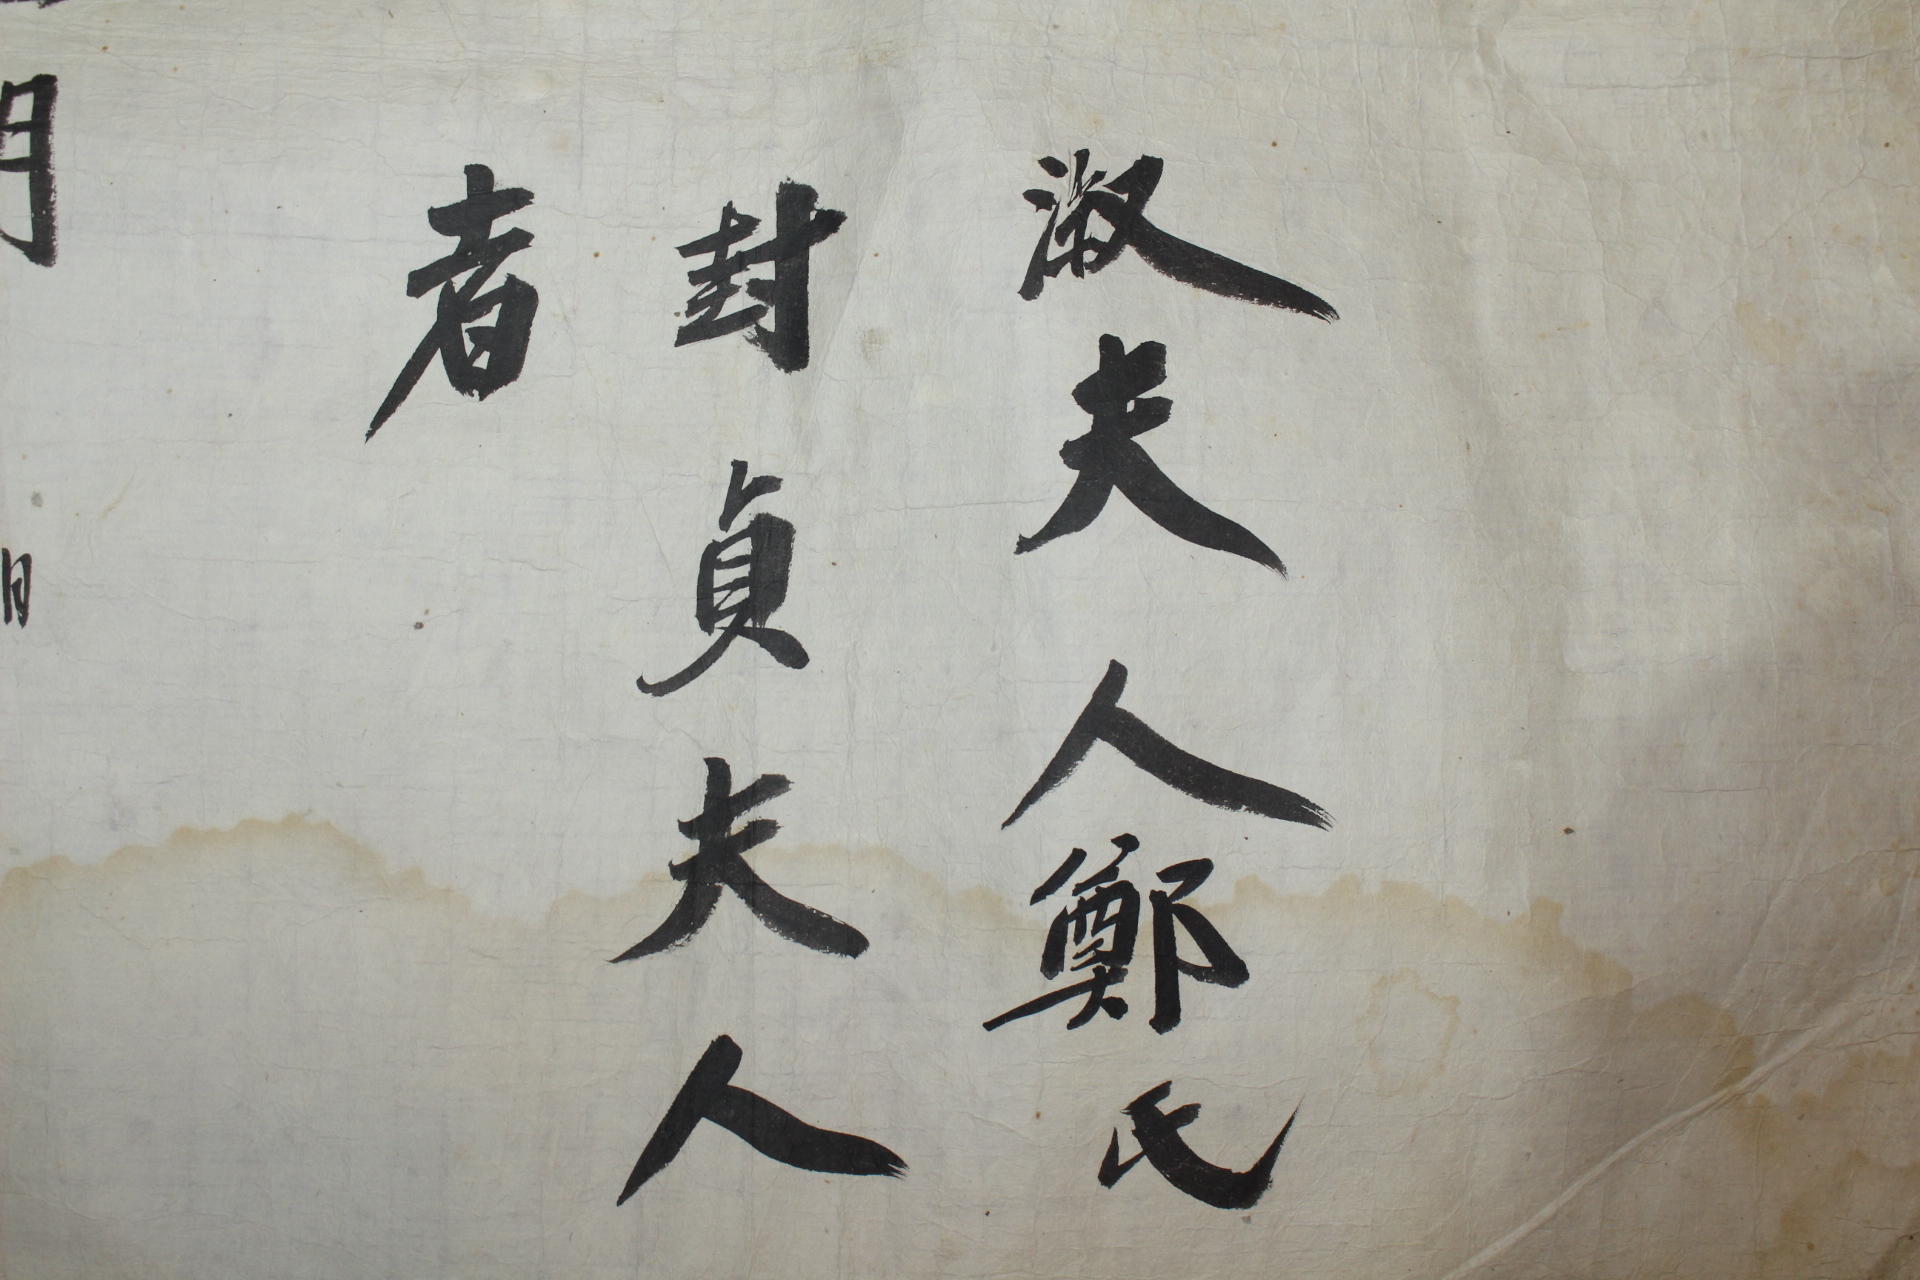 淑夫人鄭氏
封貞夫人
者
月
日